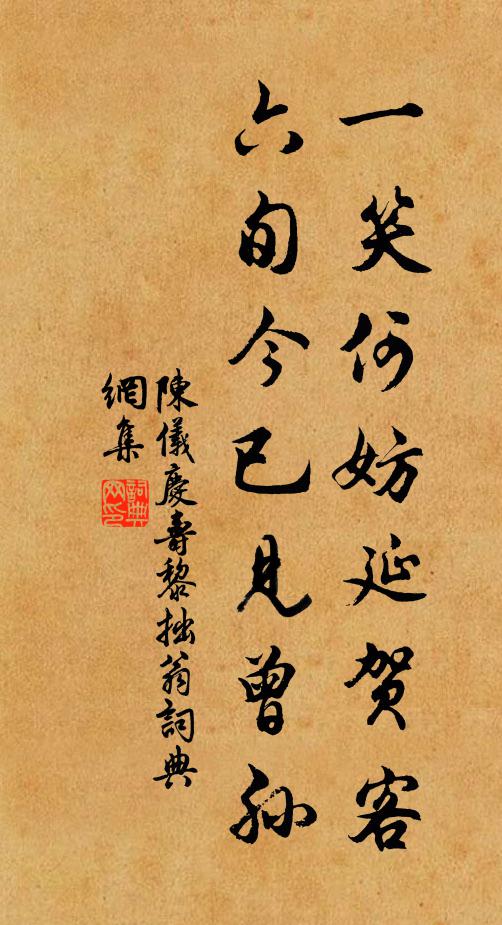 一笑何妨延賀客
六旬今已見曾孫
陳儀慶壽黎拙翁詞典
網集
詞典
网印